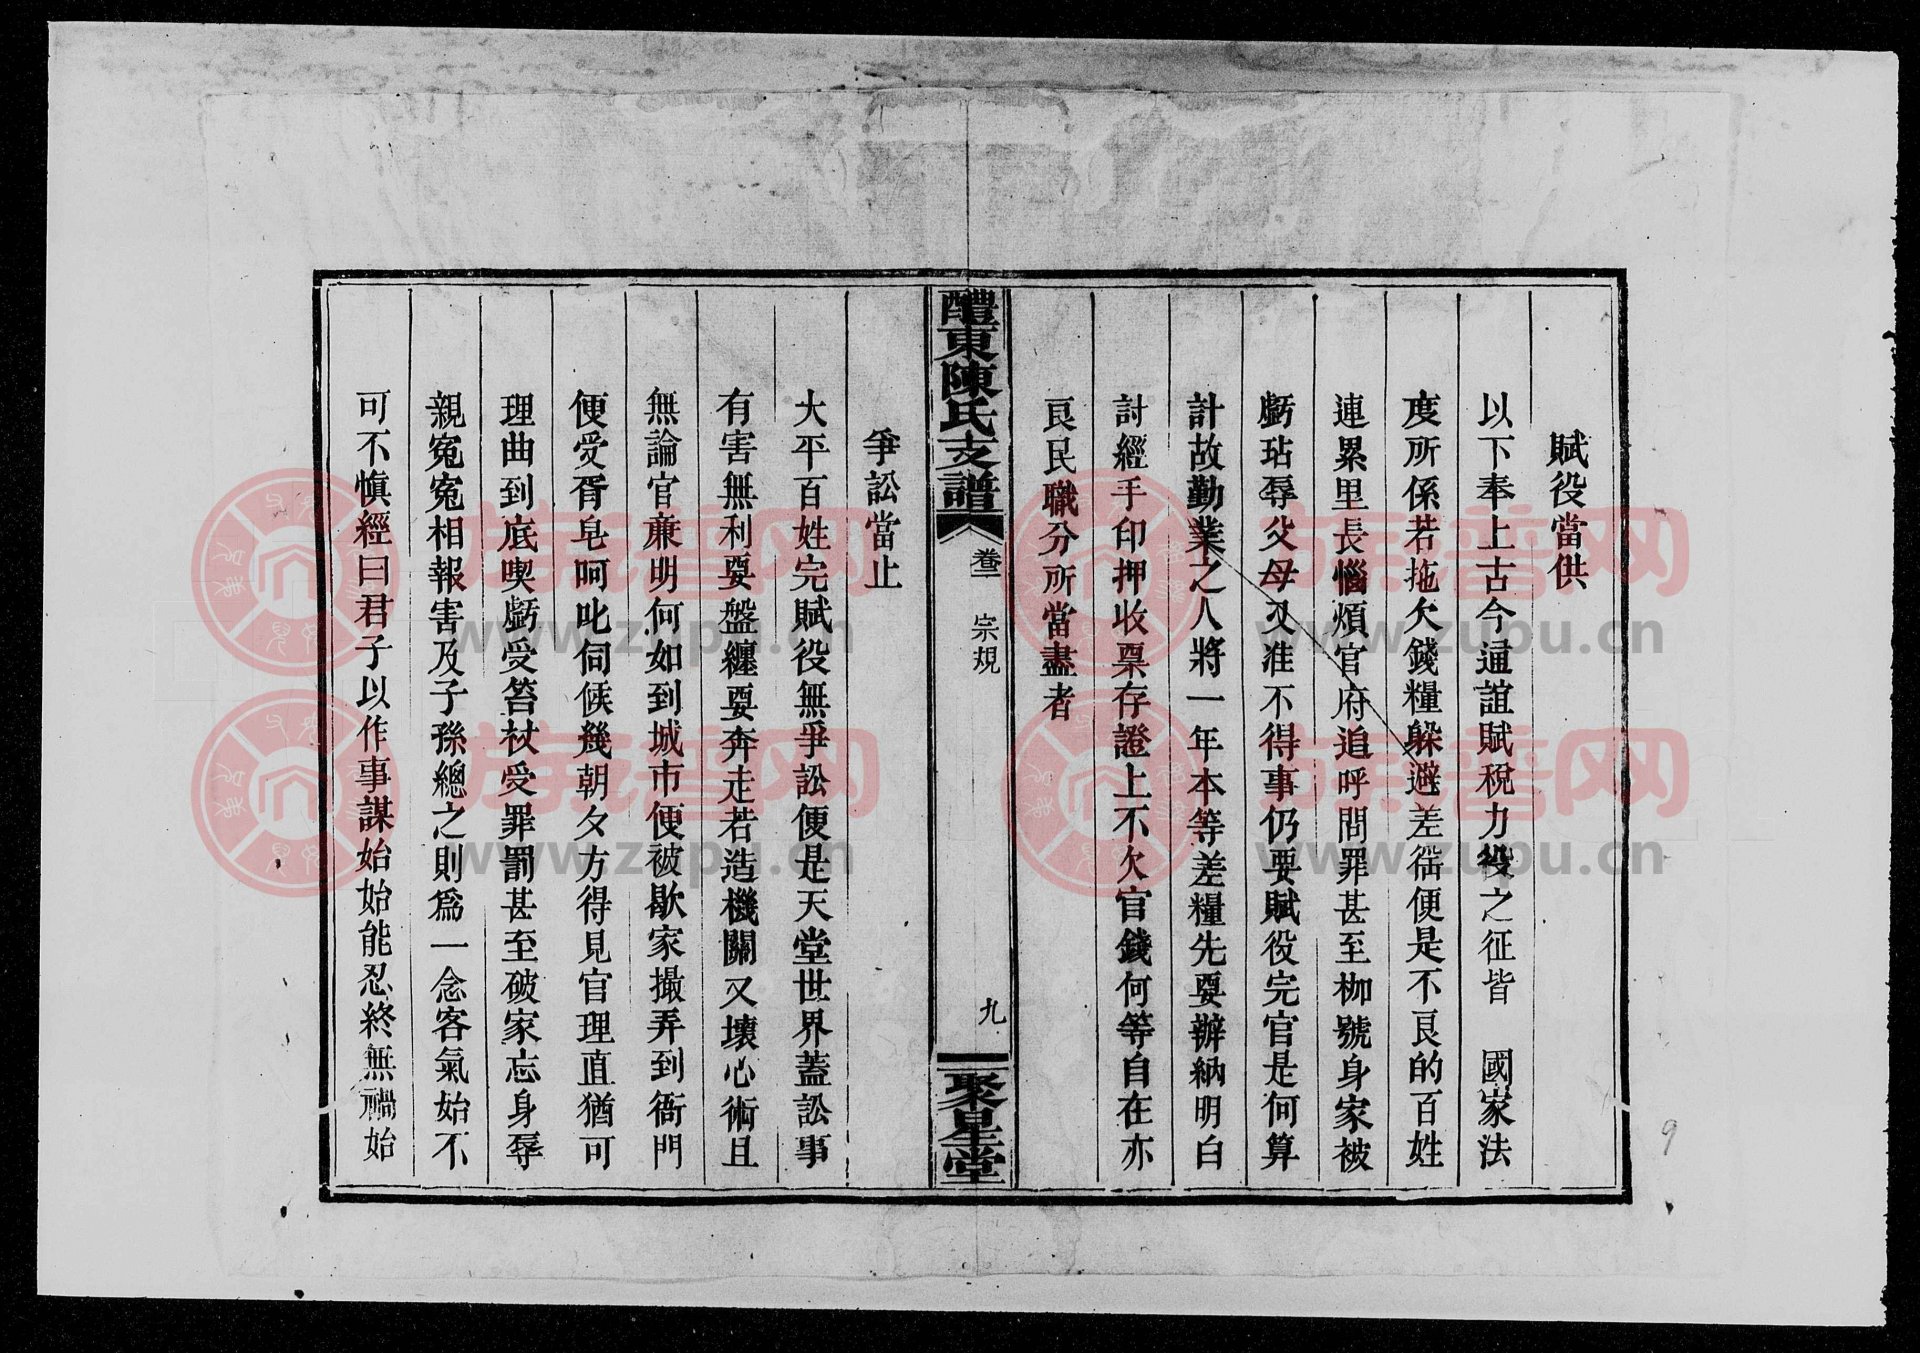 賦役當供
以下奉上古今通誼賦稅力役之征皆 國家法
度所係若拖欠錢糧躲避差徭便是不良的百姓
連累里長惱煩官府追呼問罪甚至枷號身家被
虧玷辱父母又准不得事仍要賦役完官是何算
計故勤業之人將一年本等差糧先要辦納明白
討經手印押收票存證上不欠官錢何等自在亦
良民職分所當盡者
醴東陳氏支譜
宗規
九
聚星堂
爭訟當止
大平百姓完賦役無爭訟便是天堂世界蓋訟事
有害無利要盤纏要奔走若造機關又壞心術且
無論官廉明何如到城市便被歇家撮弄到衙門
便受胥皂呵叱伺候幾朝夕方得見官理直猶可
理曲到底喫虧受笞杖受罪罰甚至破家忘身辱
親寃寃相報害及子孫總之則爲一念客氣始不
可不慎經曰君子以作事謀始始能忍終無禍始
9
族谱网
www.zupu.cn
族谱网
www.zupu.cn
族谱网
www.zupu.cn
族谱网
www.zupu.cn